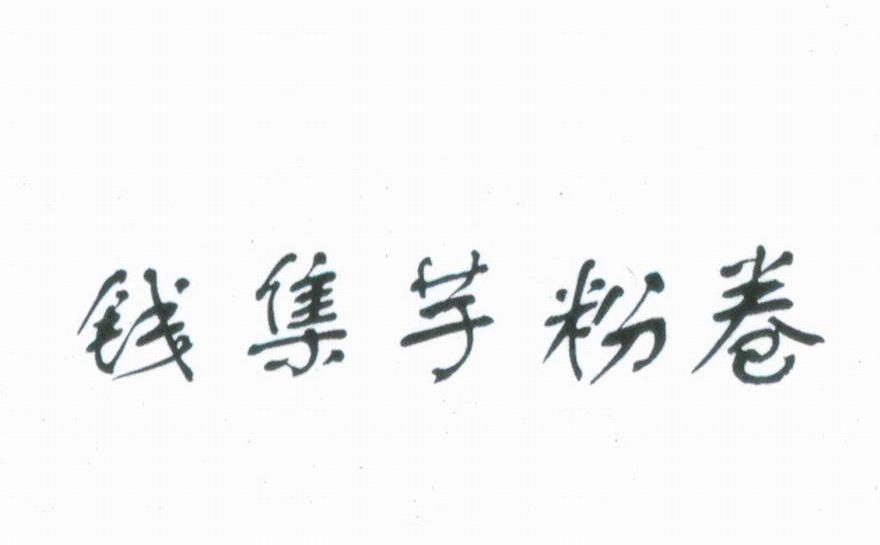 钱集芋粉卷